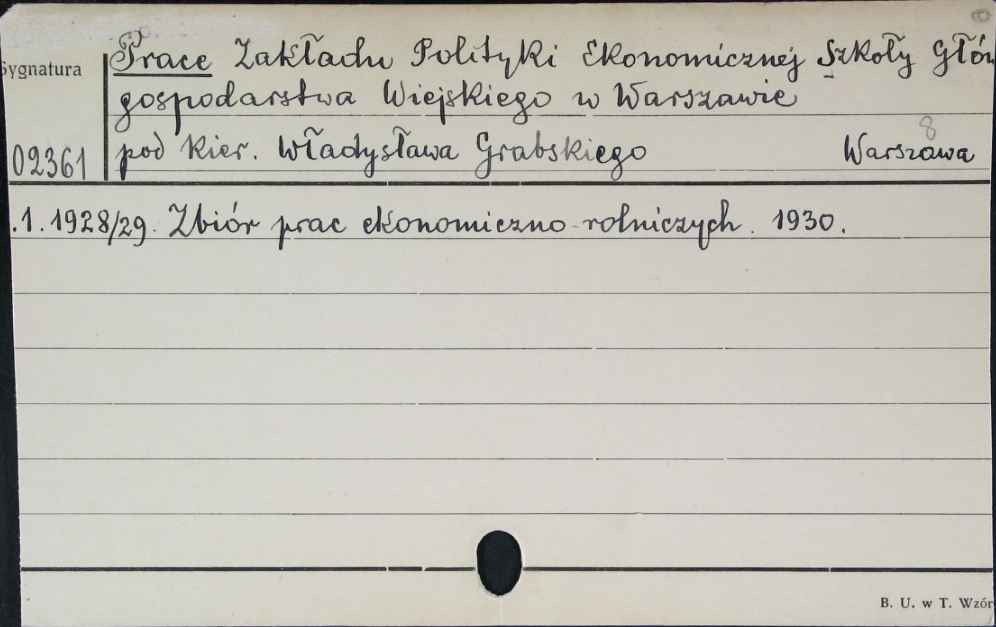 Sygnatura
Prace Zakładu Polityki Ekonomicznej Szkoły Głów
gospodarstwa Wiejskiego w Warszawie
8
02361 pod kier. Władysława Grabskiego Warszawa
.1. 1928/29. Zbiór prac ekonomiczno-rolniczych. 1930.
B. U. w T. Wzór